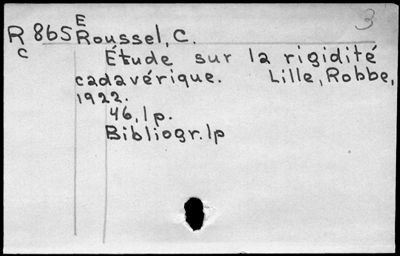 3
E
R 865 Roussel, C.
C
Étude sur la rigidité
cadavérique. Lille, Robbe,
1922.
46, 1p.
Bibliogr. 1p